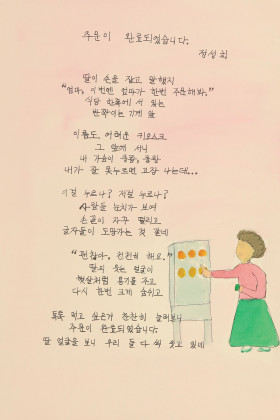 주문이 완료되었습니다.
정성희
딸이 손을 잡고 말했지
"엄마, 이번엔 엄마가 한번 주문해봐."
식당 한쪽에 서 있는
반짝이는 기계 앞
이름도 어려운 키오스크
그 앞에 서니
내 가슴이 쿵쾅, 쿵쾅
내가 잘 못누르면 고장 나는데...
이걸 누르나? 저걸 누르나?
사람들 눈치가 보여
손끝이 자꾸 떨리고
글자들이 도망가는 것 같네
"괜찮아, 천천히 해요."
딸의 웃는 얼굴이
햇살처럼 용기를 주고
다시 한번 크게 숨쉬고
톡톡 먹고 싶은거 천천히 눌러보니
주문이 완료되었습니다.
딸 얼굴을 보니 우리 둘 다 씩 웃고 있네